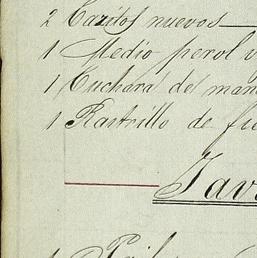 2 Cazitos nuevos
1 Medio perol v
1 Cuchara de man
1 Rastrillo de fie
Tav
1 Pail